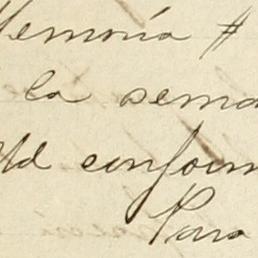 Memoria #
la sema
Ud conform
Para